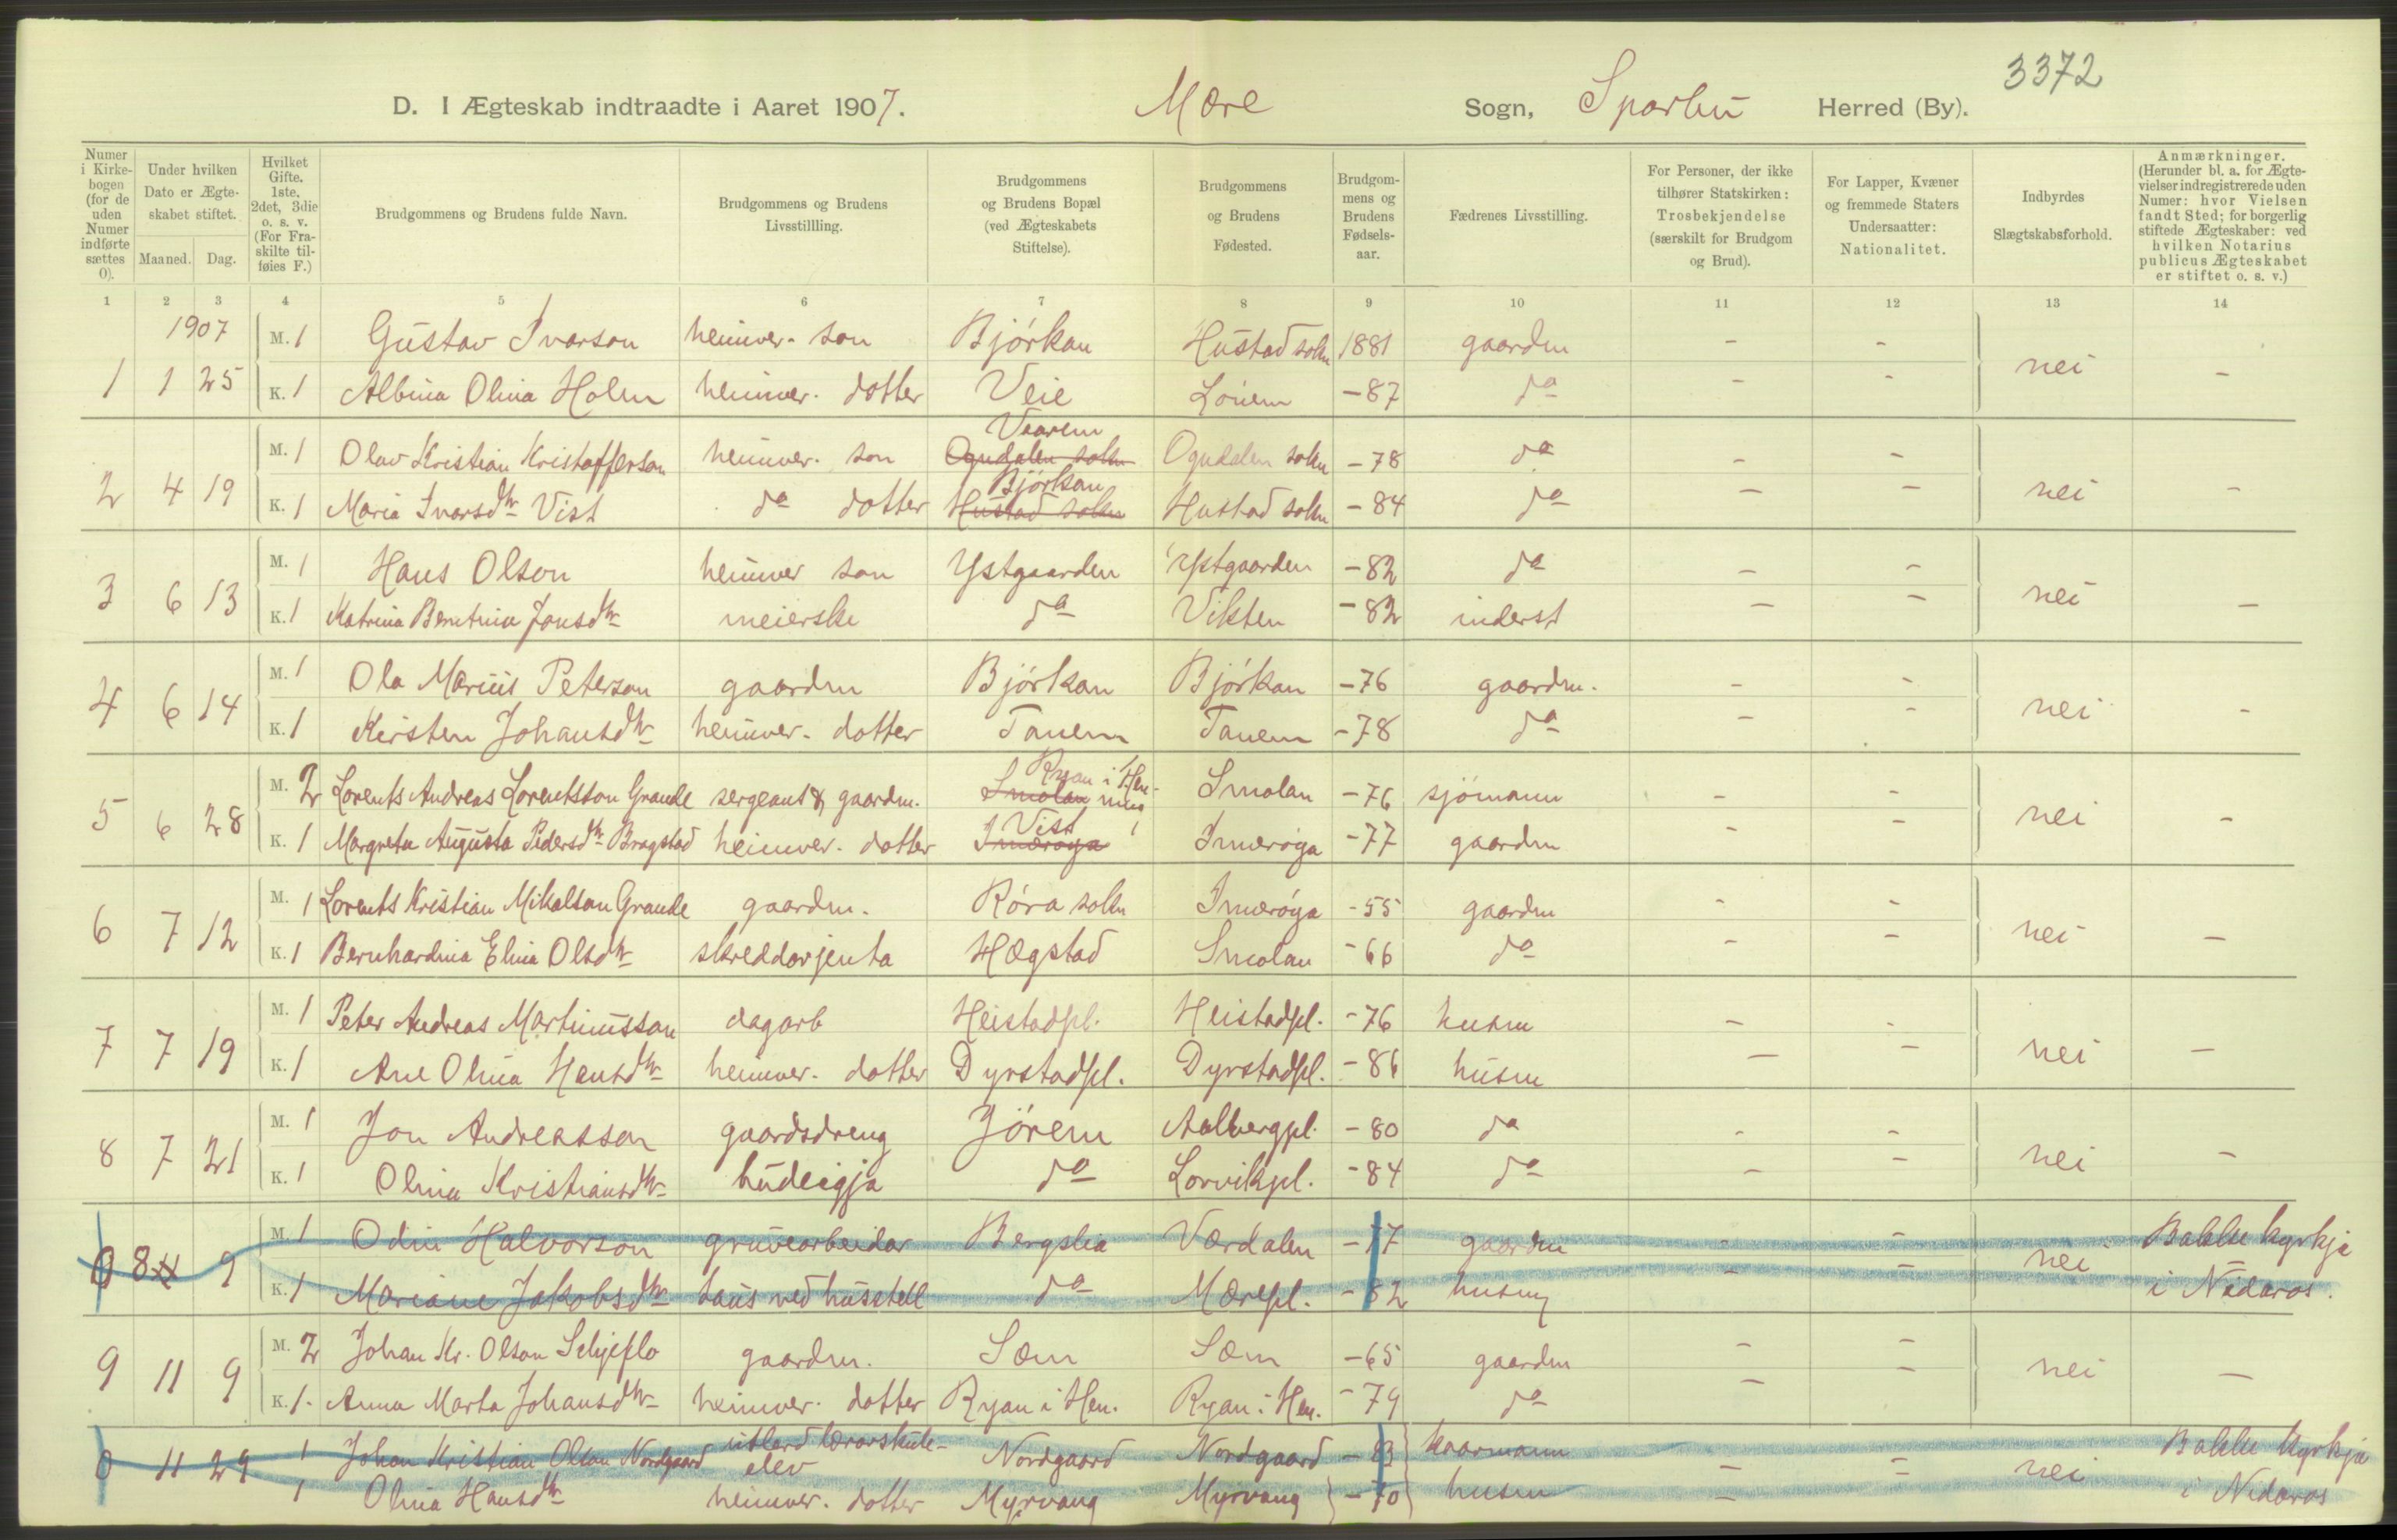 3372
D. I Ægteskab indtraadte i Aaret 1907. Mære Sogn, Sparbu Herred (By).
Numer i Kirkebogen (for de uden Numer indførte sættes 0).
Under hvilken Dato er Ægteskabet stiftet.
Maaned. Dag.
Hvilket Gifte. 1ste, 2det, 3die o. s. v. (For Fraskilte tilføies F.)
Brudgommens og Brudens fulde Navn.
Brudgommens og Brudens Livsstillling.
Brudgommens og Brudens Bopæl (ved Ægteskabets Stiftelse).
Brudgommens og Brudens Fødested.
Brudgommens og Brudens Fødselsaar.
Fædrenes Livsstilling.
For Personer, der ikke tilhører Statskirken: Trosbekjendelse (særskilt for Brudgom og Brud).
For Lapper, Kvæner og fremmede Staters Undersaatter: Nationalitet.
Indbyrdes Slægtskabsforhold.
Anmærkninger. (Herunder bl. a. for Ægtevielser indregistrerede uden Numer: hvor Vielsen fandt Sted; for borgerlig stiftede Ægteskaber: ved hvilken Notarius publicus Ægteskabet er stiftet o. s. v.)
1 2 3 4 5 6 7 8 9 10 11 12 13 14
1907
M. 1 Gustav Ivarson heimver. son Bjórkan Hustad sokn 1881 gaardm - -
1 1 25 K. 1 Albina Olina Holm heimver. dotter Veie Lóiem -87 do - - nei -
Vaarem
M. 1 Olav Kristian Kristofferson heimver. son Ogndalen sokn Ogndalen sokn -78 do - -
Bjórkan
2 4 19 K. 1 Maria Ivarsdtr Vist do dotter Hustad sokn Hustad sokn -84 do - - nei -
M. 1 Hans Olson heimver son Ystgaarden Ystgaarden -82 do - -
3 6 13 K. 1 Katrina Berntina Jonsdtr meierske do Vikten -82 inderst - - nei -
M. 1 Ola Marius Peterson gaardm Bjórkan Bjórkan -76 gaardm. - -
4 6 14 K. 1 Kirsten Johansdtr heimver. dotter Tanem Tanem -78 do - - nei -
Ryan i Hen-
M. 2 Lorents Andreas Lorentsson Grande sergeant & gaardm. Smolan ning Smolan -76 sjómann - -
Vist
5 6 28 K. 1 Margreta Augusta Pedersdtr Bragstad heimver. dotter Inderóya Inderóya -77 gaardm - - nei -
M. 1 Lorents Kristian Mikalson Grande gaardm. Róra sokn Inderóya -55 gaardm - -
6 7 12 K. 1 Bernhardina Elina Olsdtr skreddarjenta Hægstad Smolan -66 do - - nei -
M. 1 Peter Andreas Martinusson dagarb Heistadpl. Heistadpl. -76 husm - -
7 7 19 K. 1 Ane Olina Hansdtr heimver. dotter Dyrstadpl. Dyrstadpl. -86 husm - - nei -
M. 1 Jon Andreasson gaardsdreng Jórem Aalbergpl. -80 do - -
8 7 21 K. 1 Olina Kristiansdtr budeigja do Lorvikpl. -84 do - - nei -
M. 1 Odin Halvorson gruvearbeidar Bergslia Værdalen -77 gaardm - - Bakke kyrkje
0 8 9 K. 1 Mariane Jakobsdtr taus ved husstell do Mærepl. -82 husm - - nei i Nidaros.
M. 2 Johan Kr. Olson Schjeflo gaardm. Sæm Sæm -65 gaardm - -
9 11 9 K. 1. Anna Marta Johansdtr heimver. dotter Ryan i Hen. Ryan i Hen. -79 do - - nei -
utlærd lærarskule-
0 11 29 1 Johan Kristian Olson Nordgaard elev Nordgaard Nordgaard -83 kaarmann - - nei Bakke kyrkje
1 Olina Hansdtr heimver. dotter Myrvang Myrvang -70 husm - - i Nidaros